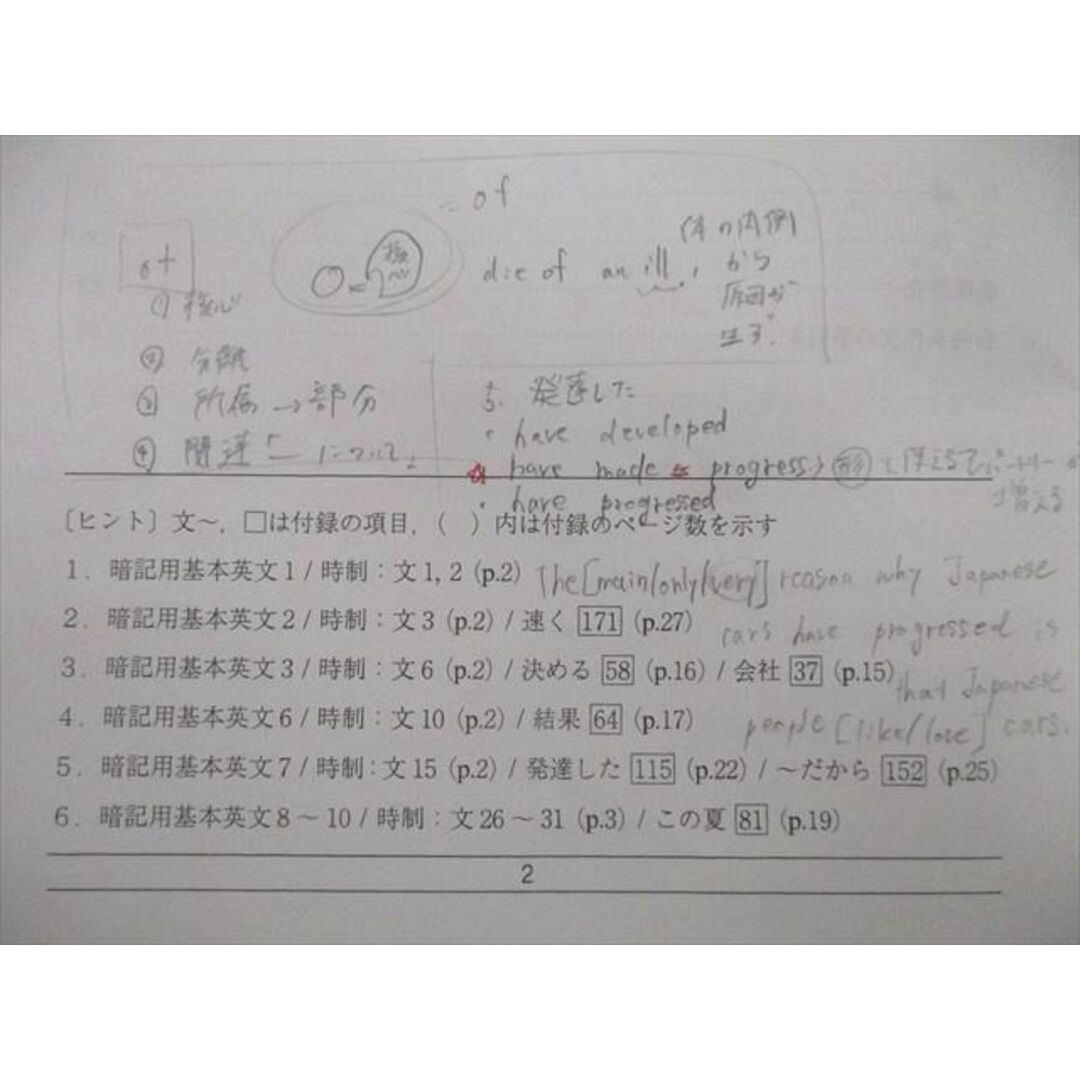 = of
of
核心
die of an ill,
体の内側
から
原因が
生る.
① 核心
② 分離
③ 所属 → 部分
④ 関連「〜について」
5. 発達した
・have developed
☆ have made progress, 形 で使えてバートリー
増える
・have progressed
〔ヒント〕文〜,□は付録の項目,( )内は付録のページ数を示す
1. 暗記用基本英文1 / 時制:文1, 2 (p.2)
The [main/only/very] reason why Japanese
2. 暗記用基本英文2 / 時制:文3 (p.2) / 速く 171 (p.27)
cars have progressed is
3. 暗記用基本英文3 / 時制:文6 (p.2) / 決める 58 (p.16) / 会社 37 (p.15)
that Japanese
4. 暗記用基本英文6 / 時制:文10 (p.2) / 結果 64 (p.17)
people [like/love] cars.
5. 暗記用基本英文7 / 時制:文15 (p.2) / 発達した 115 (p.22) / 〜だから 152 (p.25)
6. 暗記用基本英文8〜10 / 時制:文26〜31 (p.3) / この夏 81 (p.19)
2